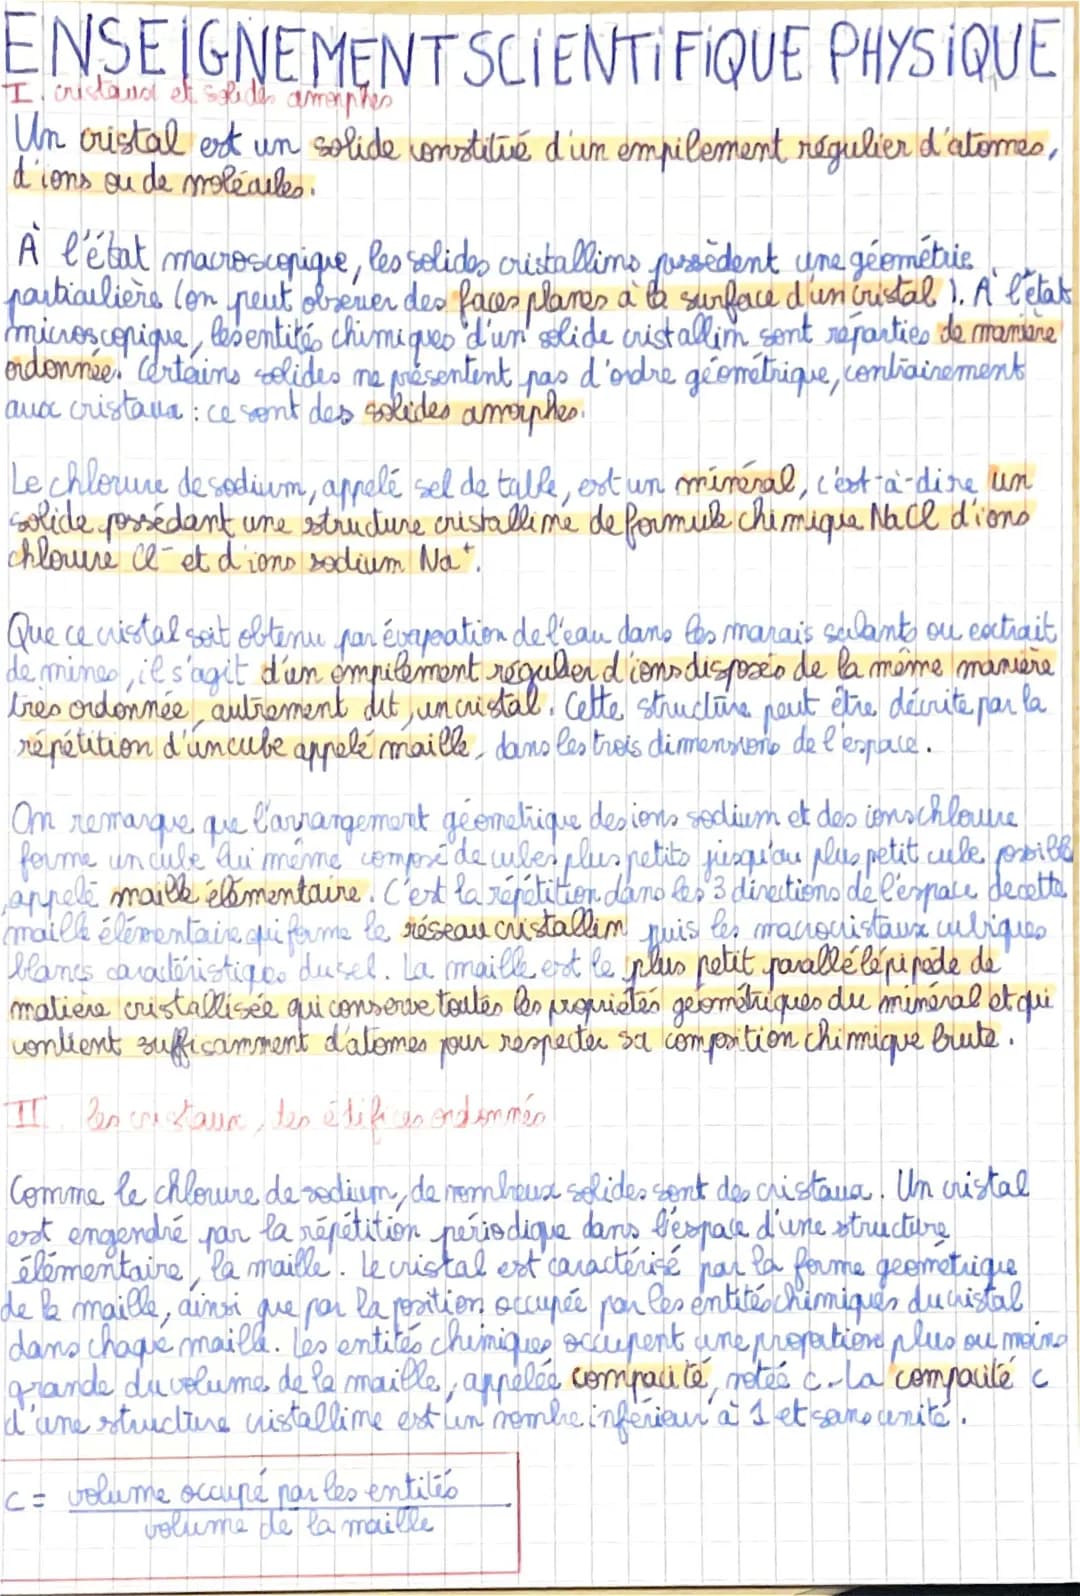 ENSEIGNEMENT SCIENTIFIQUE PHYSIQUE
I. cristaux et solides amorphes
Un cristal est un solide constitué d'un empilement régulier d'atomes,
d'ions ou de molécules.
À l'état macroscopique, les solides cristallins possèdent une géométrie
particulière (on peut observer des faces planes à la surface d'un cristal). À l'état
microscopique, les entités chimiques d'un solide cristallin sont réparties de manière
ordonnée. Certains solides ne présentent pas d'ordre géométrique, contrairement
aux cristaux : ce sont des solides amorphes.
Le chlorure de sodium, appelé sel de table, est un minéral, c'est-à-dire un
solide possédant une structure cristalline de formule chimique NaCl d'ions
chlorure Cl⁻ et d'ions sodium Na⁺.
Que ce cristal soit obtenu par évaporation de l'eau dans les marais salants ou extrait
de mines, il s'agit d'un empilement régulier d'ions disposés de la même manière
très ordonnée, autrement dit, un cristal. Cette structure peut être décrite par la
répétition d'un cube appelé maille, dans les trois dimensions de l'espace.
On remarque que l'arrangement géometrique des ions sodium et des ions chlorure
forme un cube lui même composé de cubes plus petits jusqu'au plus petit cube possible
appelé maille élémentaire. C'est la répétition dans les 3 directions de l'espace de cette
maille élémentaire qui forme le réseau cristallin puis les macrocristaux cubiques
blancs caractéristiques du sel. La maille est le plus petit parallélépipède de
matière cristallisée qui conserve toutes les propriétés géométriques du minéral et qui
contient suffisamment d'atomes pour respecter sa composition chimique brute.
II. les cristaux, des édifices ordonnés
Comme le chlorure de sodium, de nombreux solides sont des cristaux. Un cristal
est engendré par la répétition périodique dans l'espace d'une structure
élémentaire, la maille. Le cristal est caractérisé par la forme geométrique
de la maille, ainsi que par la position occupée par les entités chimiques du cristal
dans chaque maille. Les entités chimiques occupent une proportion plus ou moins
grande du volume de la maille, appelée compacité, notée c. La compacité c
d'une structure cristalline est un nombre inférieur à 1 et sans unité.
c = volume occupé par les entités
volume de la maille